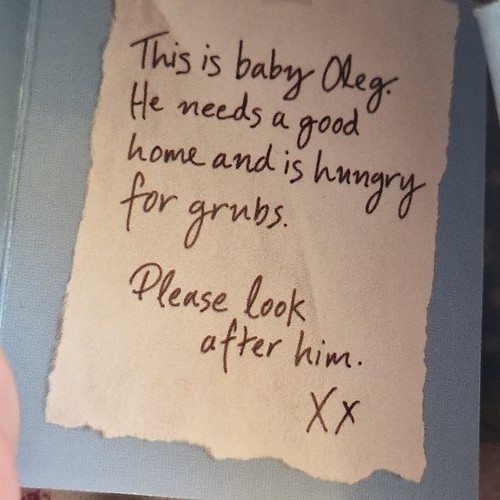 This is baby Oleg.
He needs a good
home and is hungry
for grubs.
Please look
after him.
Xx